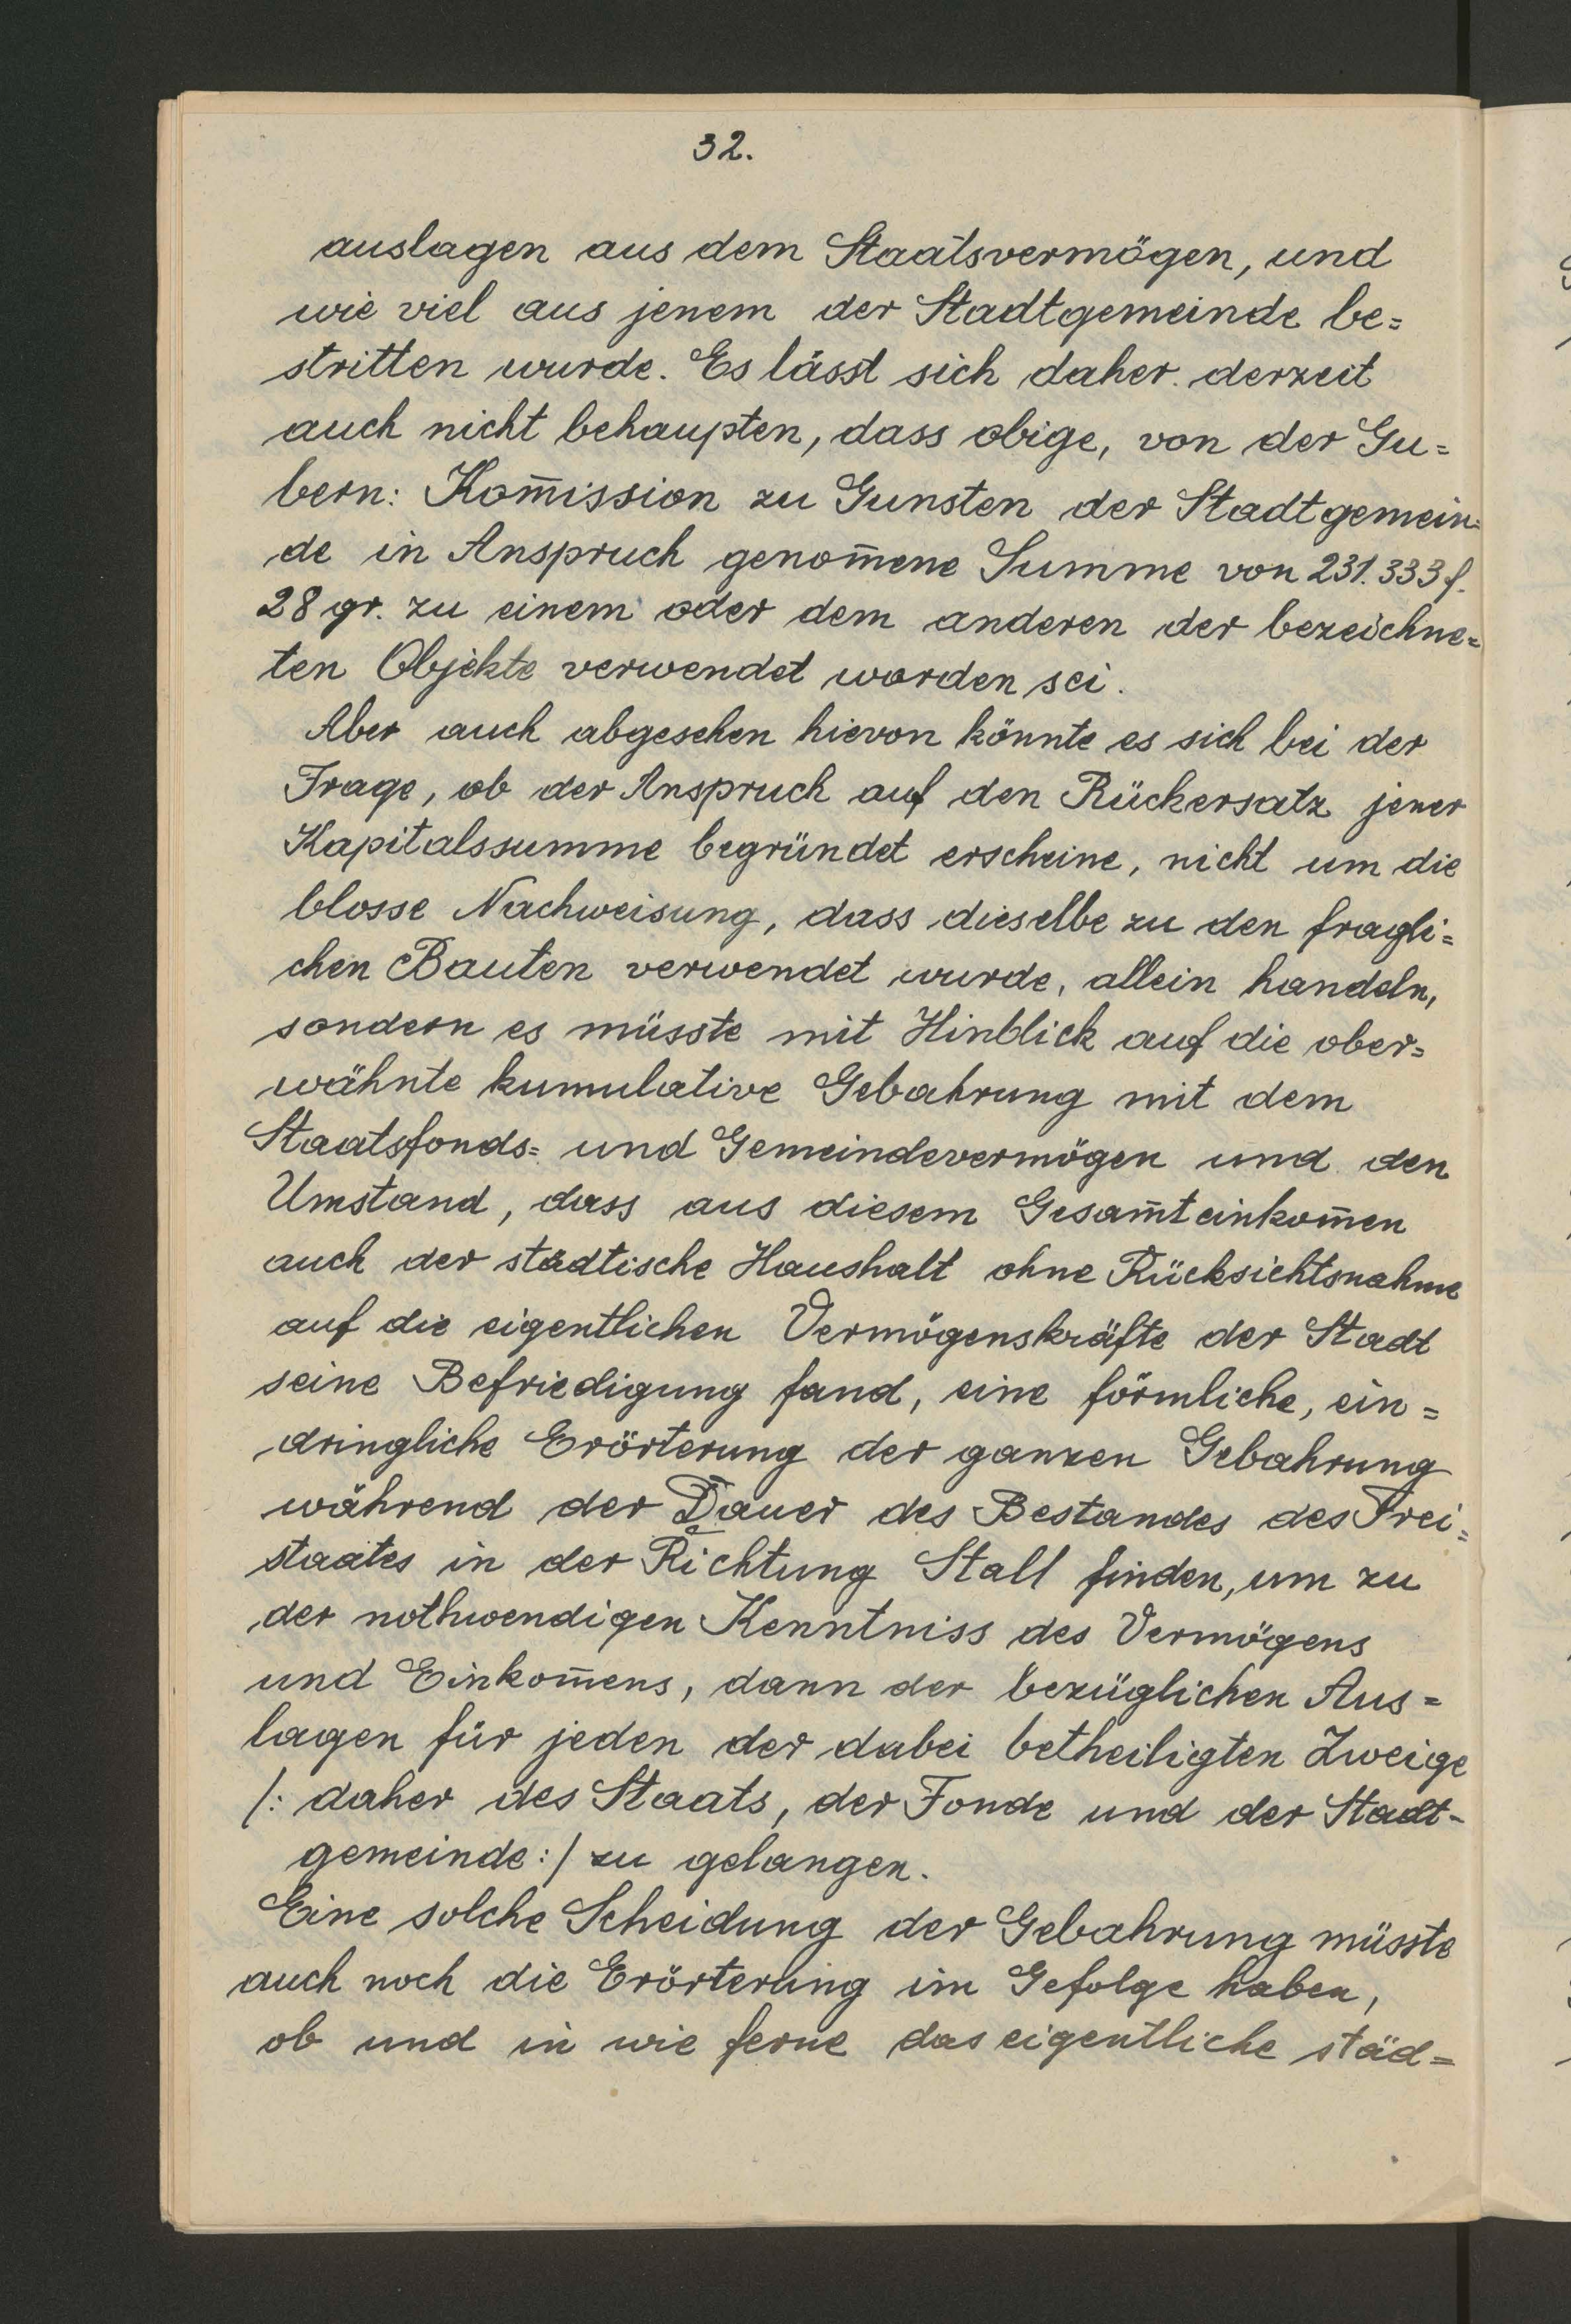 32.
auslagen aus dem Staatsvermögen, und
wie viel aus jenem der Stadtgemeinde be=
stritten wurde. Es lässt sich daher derzeit
auch nicht behaupten, dass obige, von der Gu=
bern: Kom̄ission zu Gunsten der Stadtgemein=
de in Anspruch genom̄ene Summe von 231.333 f.
28 gr. zu einem oder dem anderen der bezeichne=
ten Objekte verwendet worden sei.
Aber auch abgesehen hievon könnte es sich bei der
Frage, ob der Anspruch auf den Rückersatz jener
Kapitalssumme begründet erscheine, nicht um die
blosse Nachweisung, dass dieselbe zu den fragli=
chen Bauten verwendet wurde, allein handeln,
sondern es müsste mit Hinblick auf die ober=
wähnte kumulative Gebahrung mit dem
Staatsfonds= und Gemeindevermögen und den
Umstand, dass aus diesem Gesam̄teinkom̄en
auch der städtische Haushalt ohne Rücksichtsnahme
auf die eigentlichen Vermögenskräfte der Stadt
seine Befriedigung fand, eine förmliche, ein=
dringliche Erörterung der ganzen Gebahrung
während der Dauer des Bestandes des Frei=
staates in der Richtung Statt finden, um zu
der nothwendigen Kenntniss des Vermögens
und Einkom̄ens, dann der bezüglichen Aus=
lagen für jeden der dabei betheiligten Zweige
/: daher des Staats, der Fonde und der Stadt-
gemeinde :/ zu gelangen.
Eine solche Scheidung der Gebahrung müsste
auch noch die Erörterung im Gefolge haben,
ob und in wie ferne das eigentliche städ=